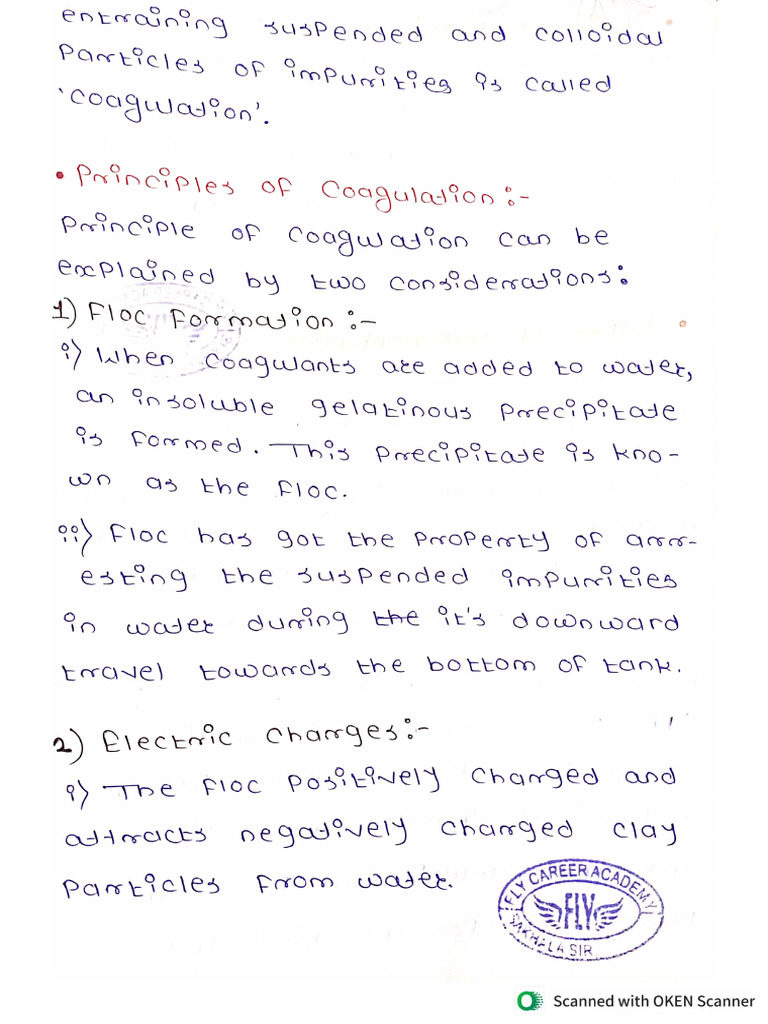 entraining suspended and colloidal
particles of impurities is called
'coagulation'.
• Principles of Coagulation:-
Principle of coagulation can be
explained by two considerations:
1) Floc formation:-
i) When coagulants are added to water,
an insoluble gelatinous precipitate
is formed. This precipitate is kno-
wn as the floc.
ii) Floc has got the property of arr-
esting the suspended impurities
in water during the it's downward
travel towards the bottom of tank.
2) Electric charges:-
i) The floc positively charged and
attracts negatively charged clay
particles from water.
FLY CAREER ACADEMY
FLY
SAKHALA SIR
Scanned with OKEN Scanner